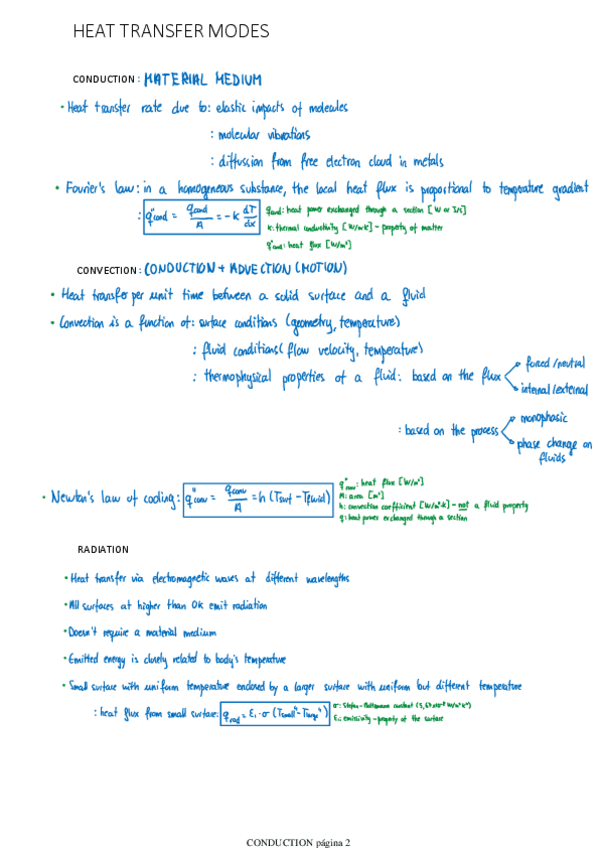 HEAT TRANSFER MODES
CONDUCTION : MATERIAL MEDIUM
• Heat transfer rate due to: elastic impacts of molecules
: molecular vibrations
: diffussion from free electron cloud in metals
• Fourier's law: in a homogeneous substance, the local heat flux is propotional to temperature gradient
: q"cond = qcond/A = -k dT/dx
qcond: heat power exchanged through a section [W or J/s]
k: thermal conductivity [W/mK] - property of matter
q"cond: heat flux [W/m²]
CONVECTION : CONDUCTION + ADVECTION (MOTION)
• Heat transfer per unit time between a solid surface and a fluid
• Convection is a function of: surface conditions (geometry, temperature)
: fluid conditions (flow velocity, temperature)
: thermophysical properties of a fluid: based on the flux
forced/neutral
internal/external
: based on the process
monophasic
phase change on fluids
• Newton's law of cooling: q"conv = qconv/A = h (Tsurf - Tfluid)
q"conv: heat flux [W/m²]
A: area [m²]
h: convection coefficient [W/m²K] - not a fluid property
q: heat power exchanged through a section
RADIATION
• Heat transfer via electromagnetic waves at different wavelengths
• All surfaces at higher than 0K emit radiation
• Doesn't require a material medium
• Emitted energy is closely related to body's temperature
• Small surface with uniform temperature enclosed by a larger surface with uniform but different temperature
: heat flux from small surface: q"rad = ε₁·σ (Tsmall⁴ - Tlarge⁴)
σ: Stefan-Boltzmann constant (5,67x10⁻⁸ W/m²K⁴)
ε₁: emissivity - property of the surface
CONDUCTION página 2